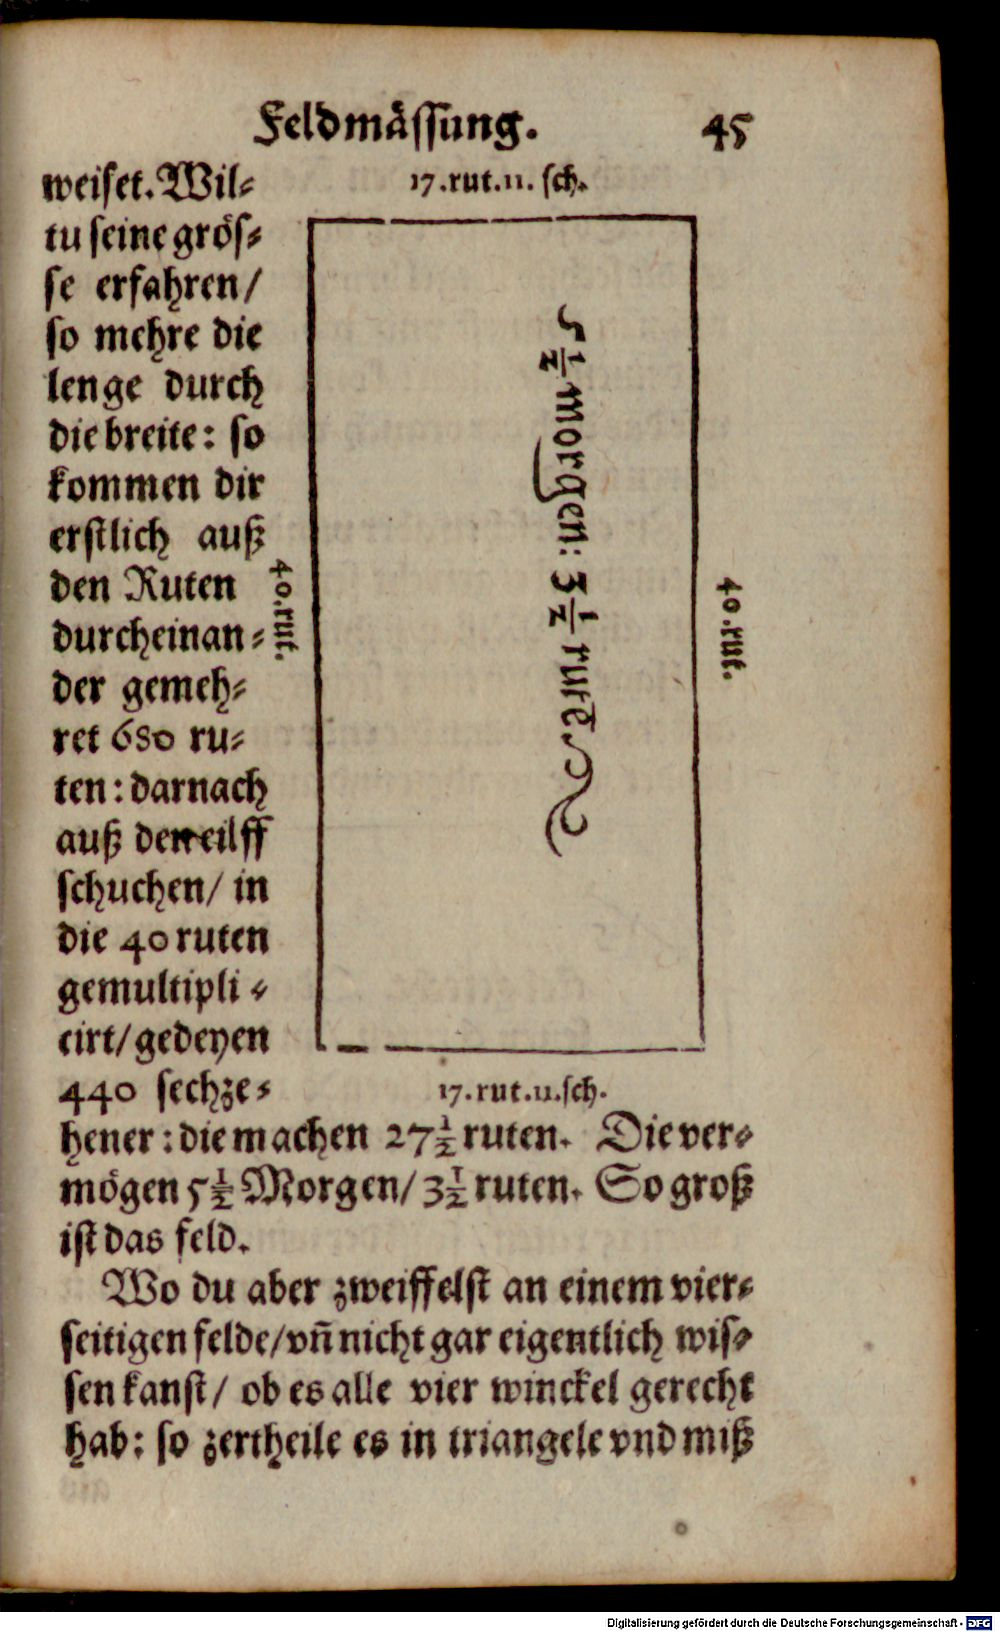 Feldmässung. 45
weiset. Wil⸗
tu seine grös⸗
se erfahren/
so mehre die
lenge durch
die breite: so
kommen dir
erstlich auß
den Ruten
durcheinan⸗
der gemeh⸗
ret 680 ru⸗
ten: darnach
auß den eilff
schuchen/ in
die 40 ruten
gemultipli⸗
cirt/ gedeyen
440 sechze⸗
17. rut. 11. sch.
40. rut.
5 1/2 morgen: 3 1/2 rutē.
40. rut.
17. rut. 11. sch.
hener: die machen 27 1/2 ruten. Die ver⸗
mögen 5 1/2 Morgen/ 3 1/2 ruten. So groß
ist das feld.
Wo du aber zweiffelst an einem vier⸗
seitigen felde/ vñ nicht gar eigentlich wis⸗
sen kanst/ ob es alle vier winckel gerecht
hab: so zertheile es in triangele vnd miß
Digitalisierung gefördert durch die Deutsche Forschungsgemeinschaft - DFG